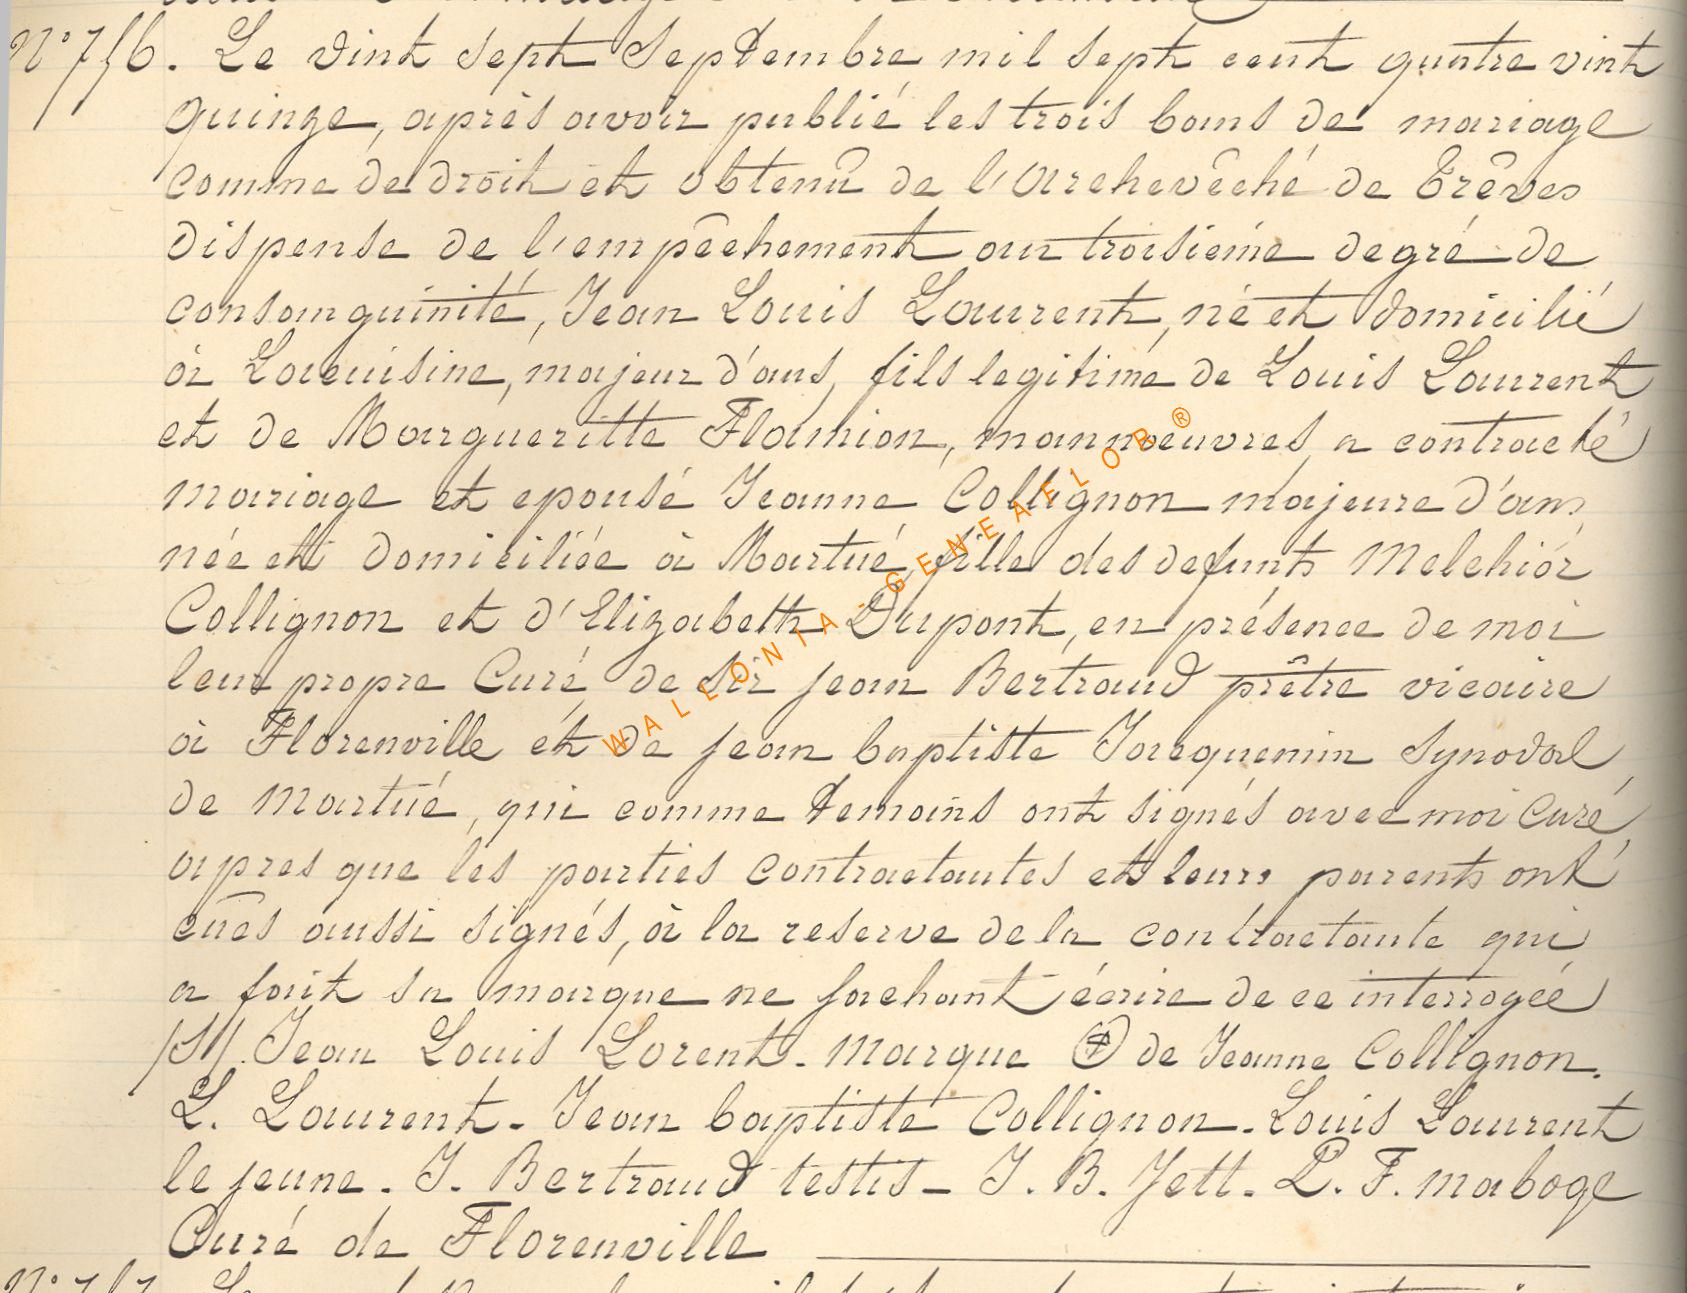 N° 756. Le vint sept Septembre mil sept cent quatre vint
quinze, après avoir publié les trois bans de mariage
comme de droit et obtenû de l'Archevêché de Trêves
dispense de l'empêchement au troisiéme degré de
consanguinité, Jean Louis Laurent, né et domicilié
à Lacuisine, majeur d'ans, fils legitime de Louis Laurent
et de Margueritte Flamion, mannoeuvres, a contracté
mariage et epousé Jeanne Collignon majeure d'ans,
née et domiciliée à Martué, fille des defunts Melchiór
Collignon et d'Elizabeth Dupont, en présence de moi
leur propre Curé, de Sir jean Bertrand prêtre vicaire
à Florenville et de jean baptiste Jacquemin Synodal
de Martué, qui comme temoins ont signés avec moi Curé
apres que les parties contractantes et leurs parents ont
eûes aussi signés, à la reserve de la contractante qui
a fait sa marque ne sachant écrire de ce interrogéé
/S/. Jean Louis Lorent - Marque de Jeanne Collignon.
L. Laurent - Jean baptiste Collignon - Louis Laurent
le jeune - J. Bertrand testis - J. B. Jett. P. F. Maboge
Curé de Florenville
WALLONIA-GENEALOB ®